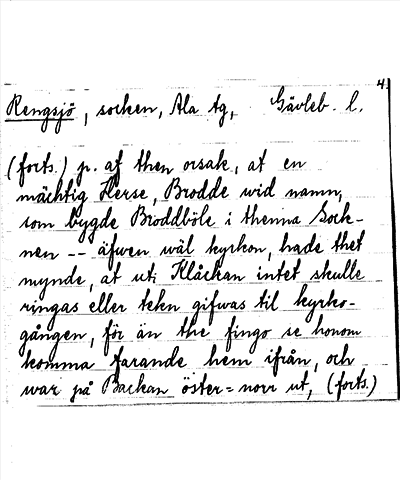 4.
Rengsjö, socken, Ala tg, Gävleb. l.
(forts.) p. af then orsak, at en
mächtig Herse, Brodde wid namn,
som bygde Broddböle i thenna Sock-
nen -- äfwen wäl kyrkon, hade thet
mynde, at uti Klåckan intet skulle
ringas eller tekn gifwas til kyrko-
gången, för än the fingo se honom
komma farande hem ifrån, och
war på Backan öster=norr ut, (forts.)